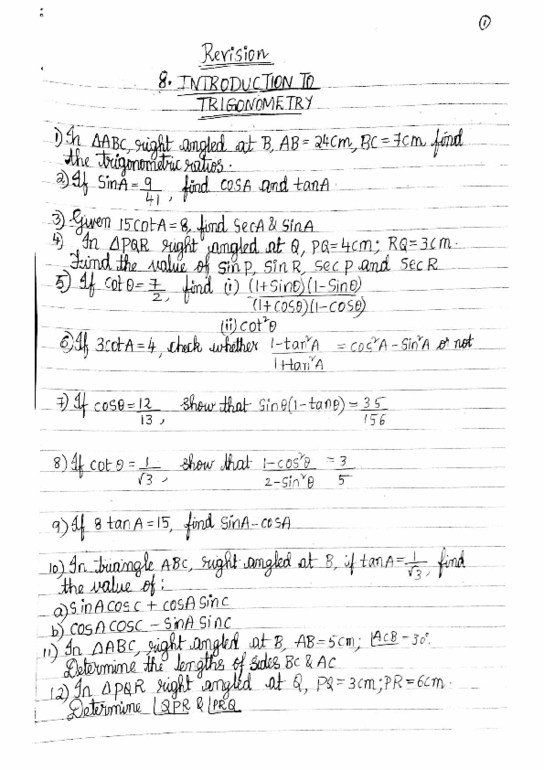 ①
Revision
8. INTRODUCTION TO
TRIGONOMETRY
1) In ΔABC, right angled at B, AB = 24cm, BC = 7cm find
the trigonometric ratios.
2) If SinA = 9/41, find cosA and tanA
3) Given 15cotA = 8, find SecA & SinA
4) In ΔPQR right angled at Q, PQ = 4cm; RQ = 3cm.
Find the value of SinP, Sin R, Sec P and Sec R
5) If cotθ = 7/2, find (i) (1+Sinθ)(1-Sinθ)/(1+cosθ)(1-cosθ)
(ii) cot²θ
6) If 3cotA = 4, check whether 1-tan²A/1+tan²A = cos²A - Sin²A or not
7) If cosθ = 12/13, show that Sinθ(1-tanθ) = 35/156
8) If cotθ = 1/√3, show that 1-cos²θ/2-Sin²θ = 3/5
9) If 8 tanA = 15, find SinA - cosA
10) In triangle ABC, right angled at B, if tanA = 1/√3, find
the value of:
a) SinA cosC + cosA SinC
b) cosA cosC - SinA SinC
11) In ΔABC, right angled at B, AB = 5cm; ∠ACB = 30°.
Determine the lengths of sides BC & AC
12) In ΔPQR right angled at Q, PQ = 3cm; PR = 6cm.
Determine ∠QPR & ∠PRQ